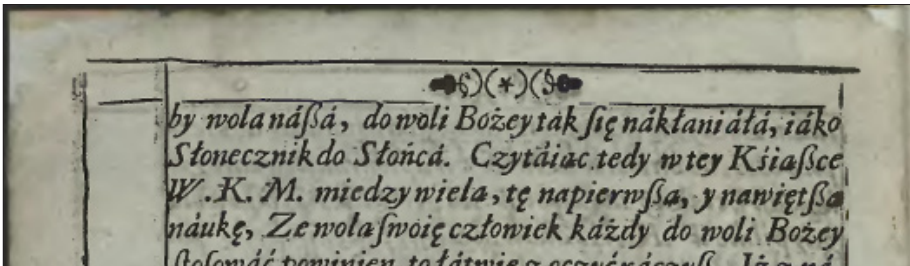 by wola náßá, do woli Bożey ták ſię nákłaniáłá, iáko
Słonecznik do Słońcá. Czytáiac tedy w tey Kśiaßce
W. K. M. miedzy wiela, tę napierwßa, y nawiętßa
náukę, Ze wola ſwoię człowiek káżdy do woli Bożey
ſtoſowáć powinien, to łátwie z